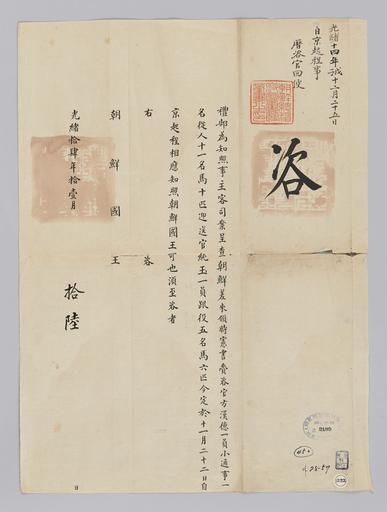 光緒十四年戊十二月二十五日
自京起程事
曆咨官回便
咨
禮部為知照事主客司案呈查朝鮮差來領時憲書賫咨官方漢德一員小通事一
名從人十一名馬十匹迎送官統玉一員跟役五名馬六匹今定於十一月二十二日自
京起程相應知照朝鮮國王可也須至咨者
右 咨
朝鮮國王
光緒拾肆年拾壹月 拾陸 日
2190